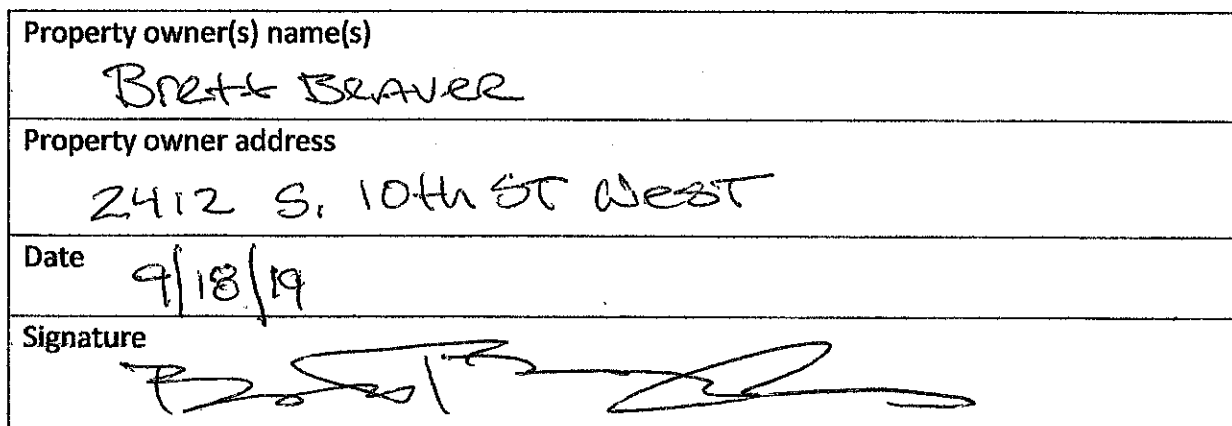 Property owner(s) name(s)
Brett Beaver
Property owner address
2412 S. 10th ST West
Date 9/18/19
Signature